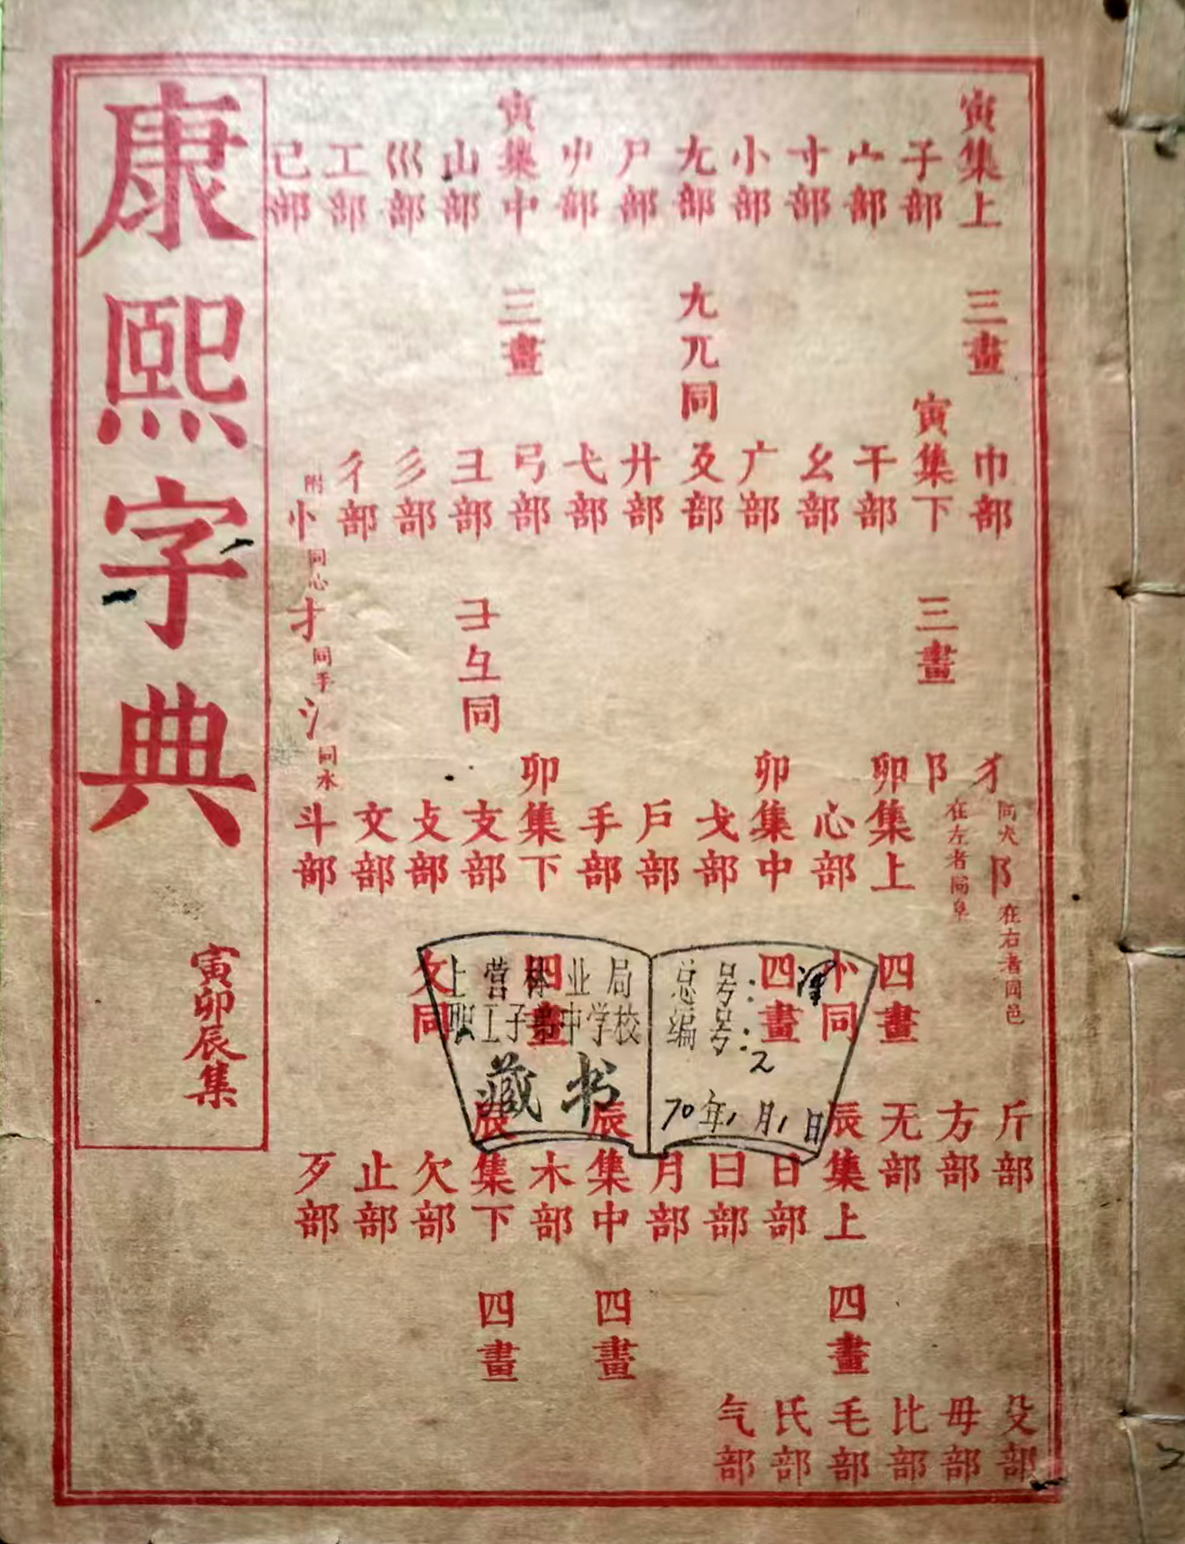 康熙字典
寅卯辰集
寅集上 三畫
子部
宀部
寸部
小部
尢部 九兀同
尸部
屮部
寅集中 三畫
山部
巛部
工部
己部
巾部
寅集下 三畫
干部
幺部
广部
廴部
廾部
弋部
弓部
彐部 彐彑同
彡部
彳部
附忄同心扌同手氵同水
犭同犬阝在右者同邑
阝在左者同阜
卯集上 四畫
心部 同
卯集中 四畫
戈部
戶部
手部
卯集下 四畫
支部
攴部 攵同
文部
斗部
斤部
方部
无部
辰集上 四畫
日部
曰部
月部
辰集中 四畫
木部
辰集下 四畫
欠部
止部
歹部
殳部
毋部
比部
毛部
氏部
气部
上营林业局
职工子弟中学校
藏书
总号:
编号:2
70年1月1日